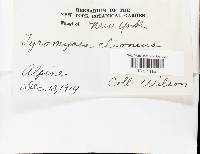 HERBARIUM OF THE
NEW YORK BOTANICAL GARDEN
Fungi of New York
Tyromyces chioneus
Alpine
Dec. 13, 1914 Coll. Wilson